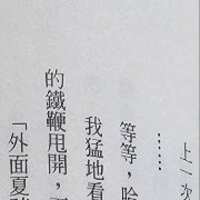 上一次
……
等等，哈
我猛地看
的鐵鞭甩開，
「外面夏